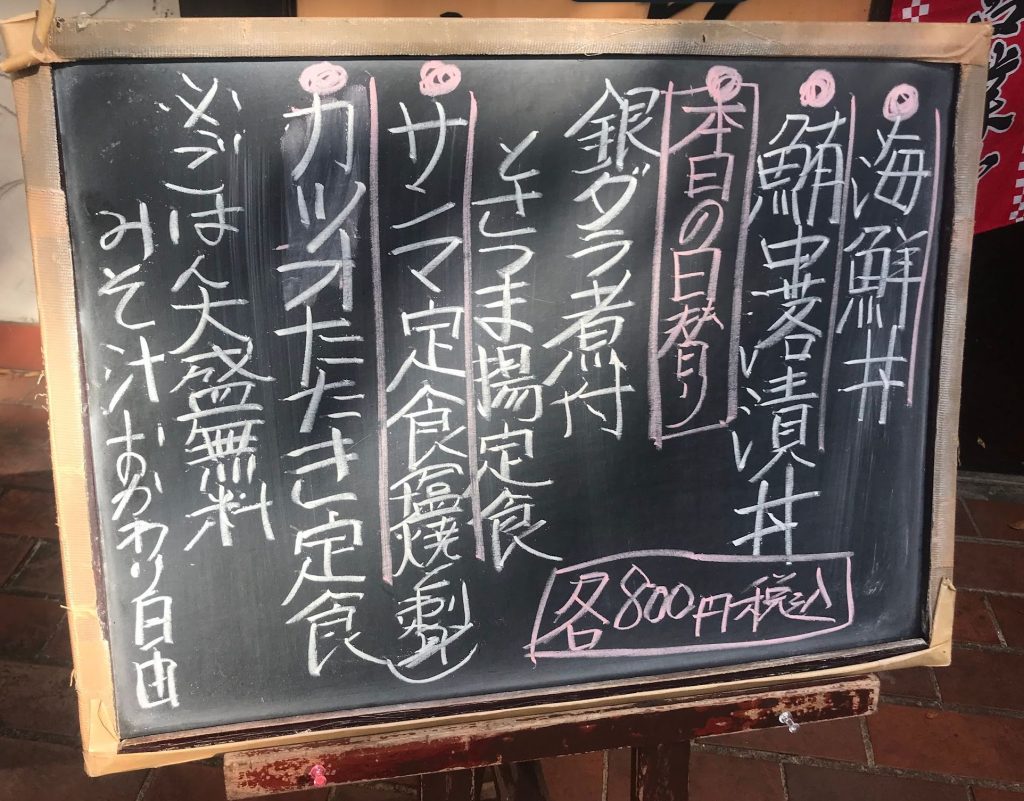 海鮮丼
鮪中落漬丼
本日の日替り
銀ダラ煮付
とさつま揚定食
サンマ定食(塩焼と刺)
カツオたたき定食
※ごはん大盛無料
みそ汁おかわり自由
各800円税込